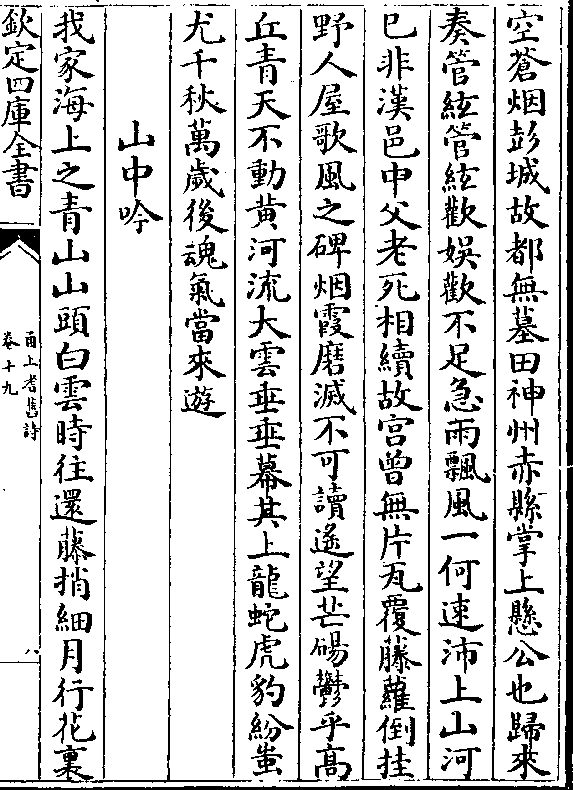 空蒼烟彭城故都無墓田神州赤縣掌上懸公也歸來
奏管絃管絃歡娯歡不足急雨飄風一何速沛上山河
已非漢邑中父老死相續故宫曾無片瓦覆藤蘿倒挂
野人屋歌風之碑烟霞磨滅不可讀遙望芒碭鬱乎高
丘青天不動黄河流大雲垂垂幕其上龍蛇虎豹紛蚩
尤千秋萬歲後魂氣當來遊
山中吟
我家海上之青山山頭白雲時往還藤捎細月行花裏
欽定四庫全書
甬上耆舊詩
卷十九
八